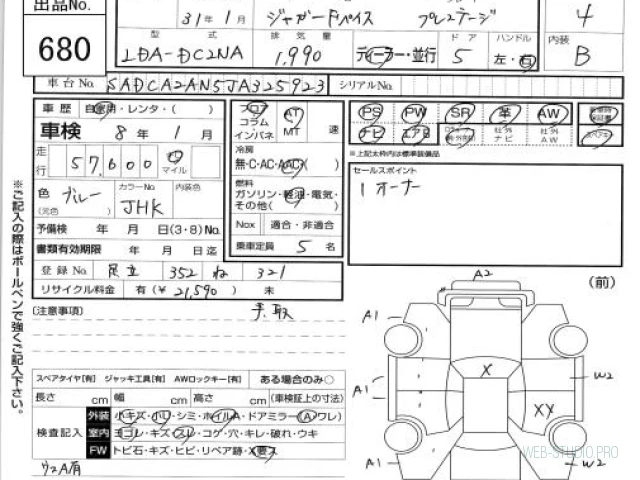 出品No.
680
31年1月 ジャガード Pペイス プレステージ
4
型式 排気量 ドア ハンドル 内装
LDA-DC2NA 1,990 ディーラー・並行 5 左・右 B
車台No. SADCA2AN5JA325923 シリアルNo.
車歴 自家用・レンタ・( )
フロア コラム インパネ AT MT 速
PS PW SR 革 AW
ナビ エアB 社外ナビ 社外AW
車検 8年 1月
※上記太枠内は標準装備品
走行 57,600 マイル
冷房
無・C・AC・AAC( )
セールスポイント
1オーナー
色 ブルー (元色) カラーNo. JHK 内装色
燃料
ガソリン・軽油・電気・その他( )
予備検 年 月 日(3・8)No.
Nox 適合・非適合
書類有効期限 年 月 日迄
乗車定員 5名
登録No. 足立 352 ね 321
リサイクル料金 有(¥21,590) 未
(注意事項) 手取
※ご記入の際はボールペンで強くご記入下さい。
スペアタイヤ[有] ジャッキ工具[有] AWロックキー[有] ある場合のみ○
長さ cm 幅 cm 高さ cm (車検証上の寸法)
検査記入
外装 小キズ・小凹・シミ・ホイルA・ドアミラー(A ワレ)
室内 ヨゴレ・キズ・スレ・コゲ・穴・キレ・破れ・ウキ
FW トビ石・キズ・ヒビ・リペア跡・X要ス
ウスA有
(前)
A2
A1
A1
A1
X
XX
W2
W2
WEB-STUDIO.PRO